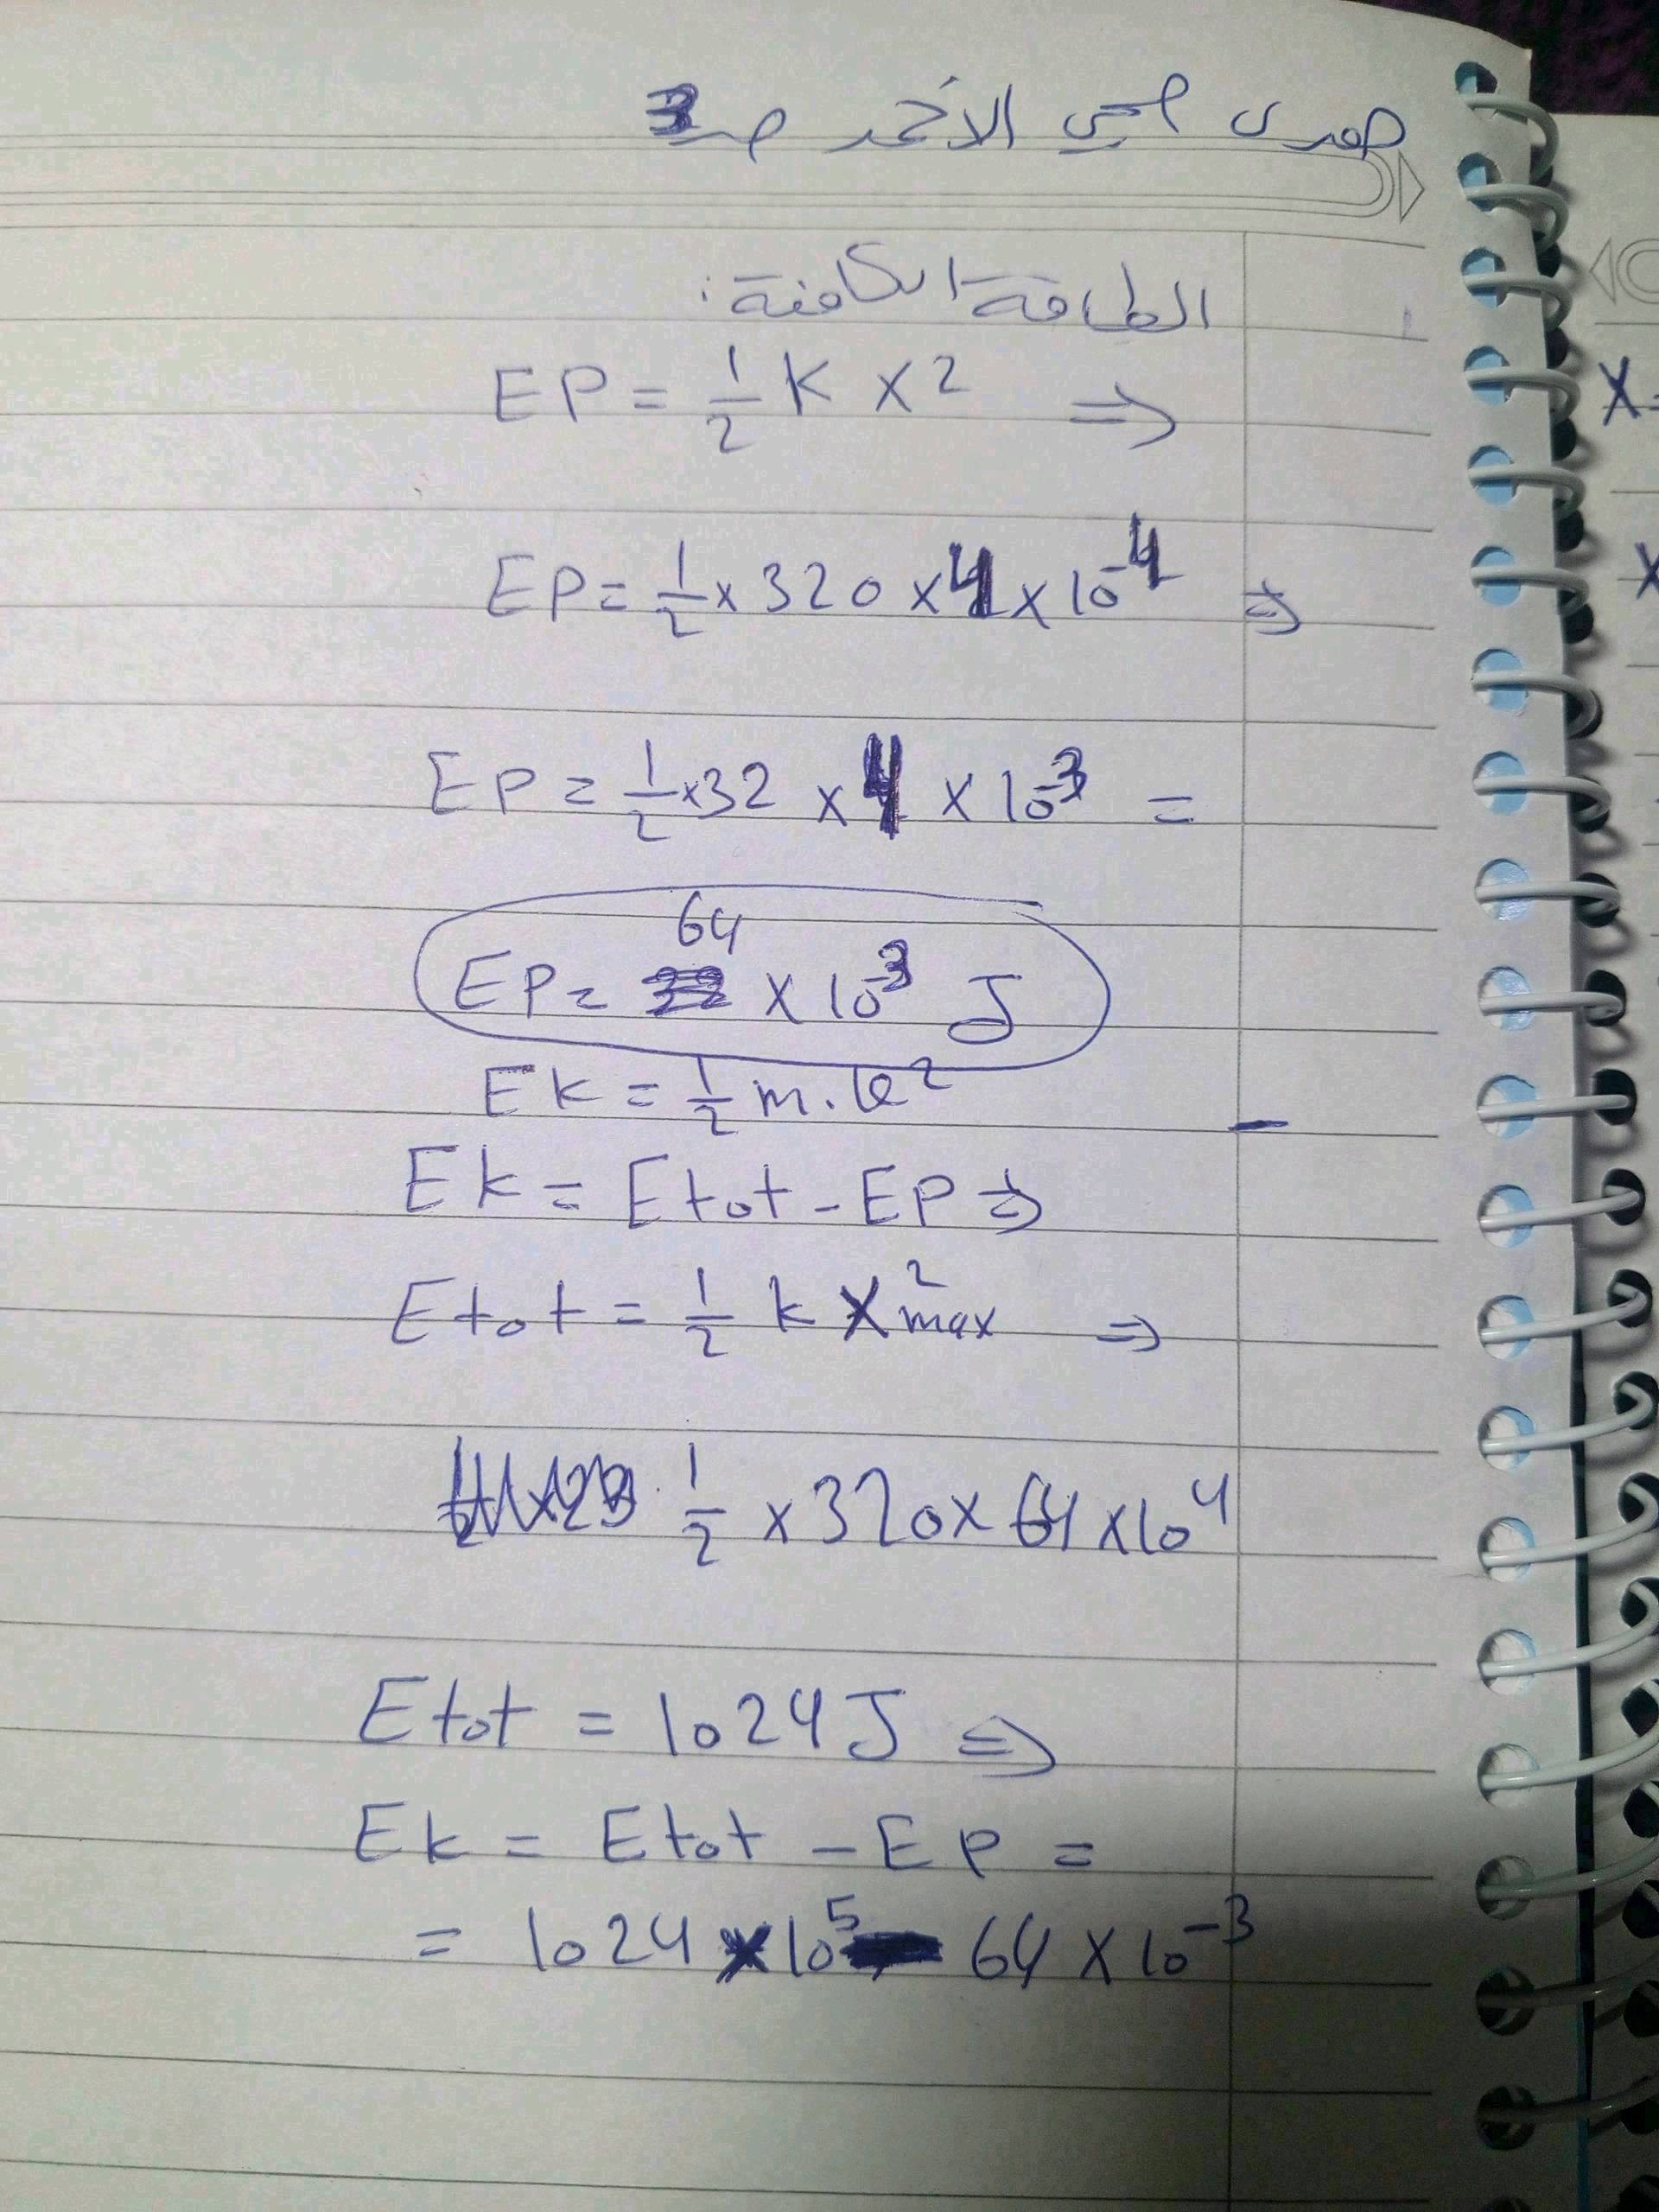 الاحمد ص3
الطاقة الكامنة:
EP = 1/2 K X2 ⇒
EP = 1/2 × 320 × 4 × 10^-4 ⇒
EP = 1/2 × 32 × 4 × 10^-3 =
EP = 64 × 10^-3 J
Ek = 1/2 m.v^2
Ek = Etot - EP ⇒
Etot = 1/2 k X^2 max ⇒
1/2 × 320 × 64 × 10^4
Etot = 1024 J ⇒
Ek = Etot - EP =
= 1024 × 10^5 - 64 × 10^-3
X=
X